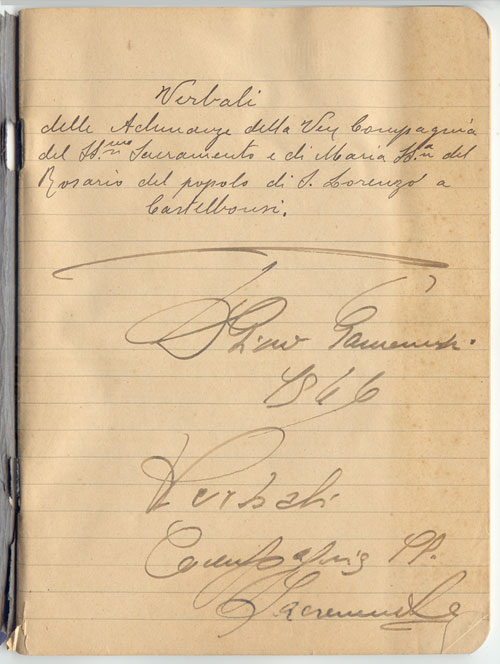 Verbali
delle Adunanze della Ven Compagnia
del SS.mo Sacramento e di Maria SS.a del
Rosario del popolo di S. Lorenzo a
Castelbonsi.
1946
Verbali
Compagnia SS.
Sacramento